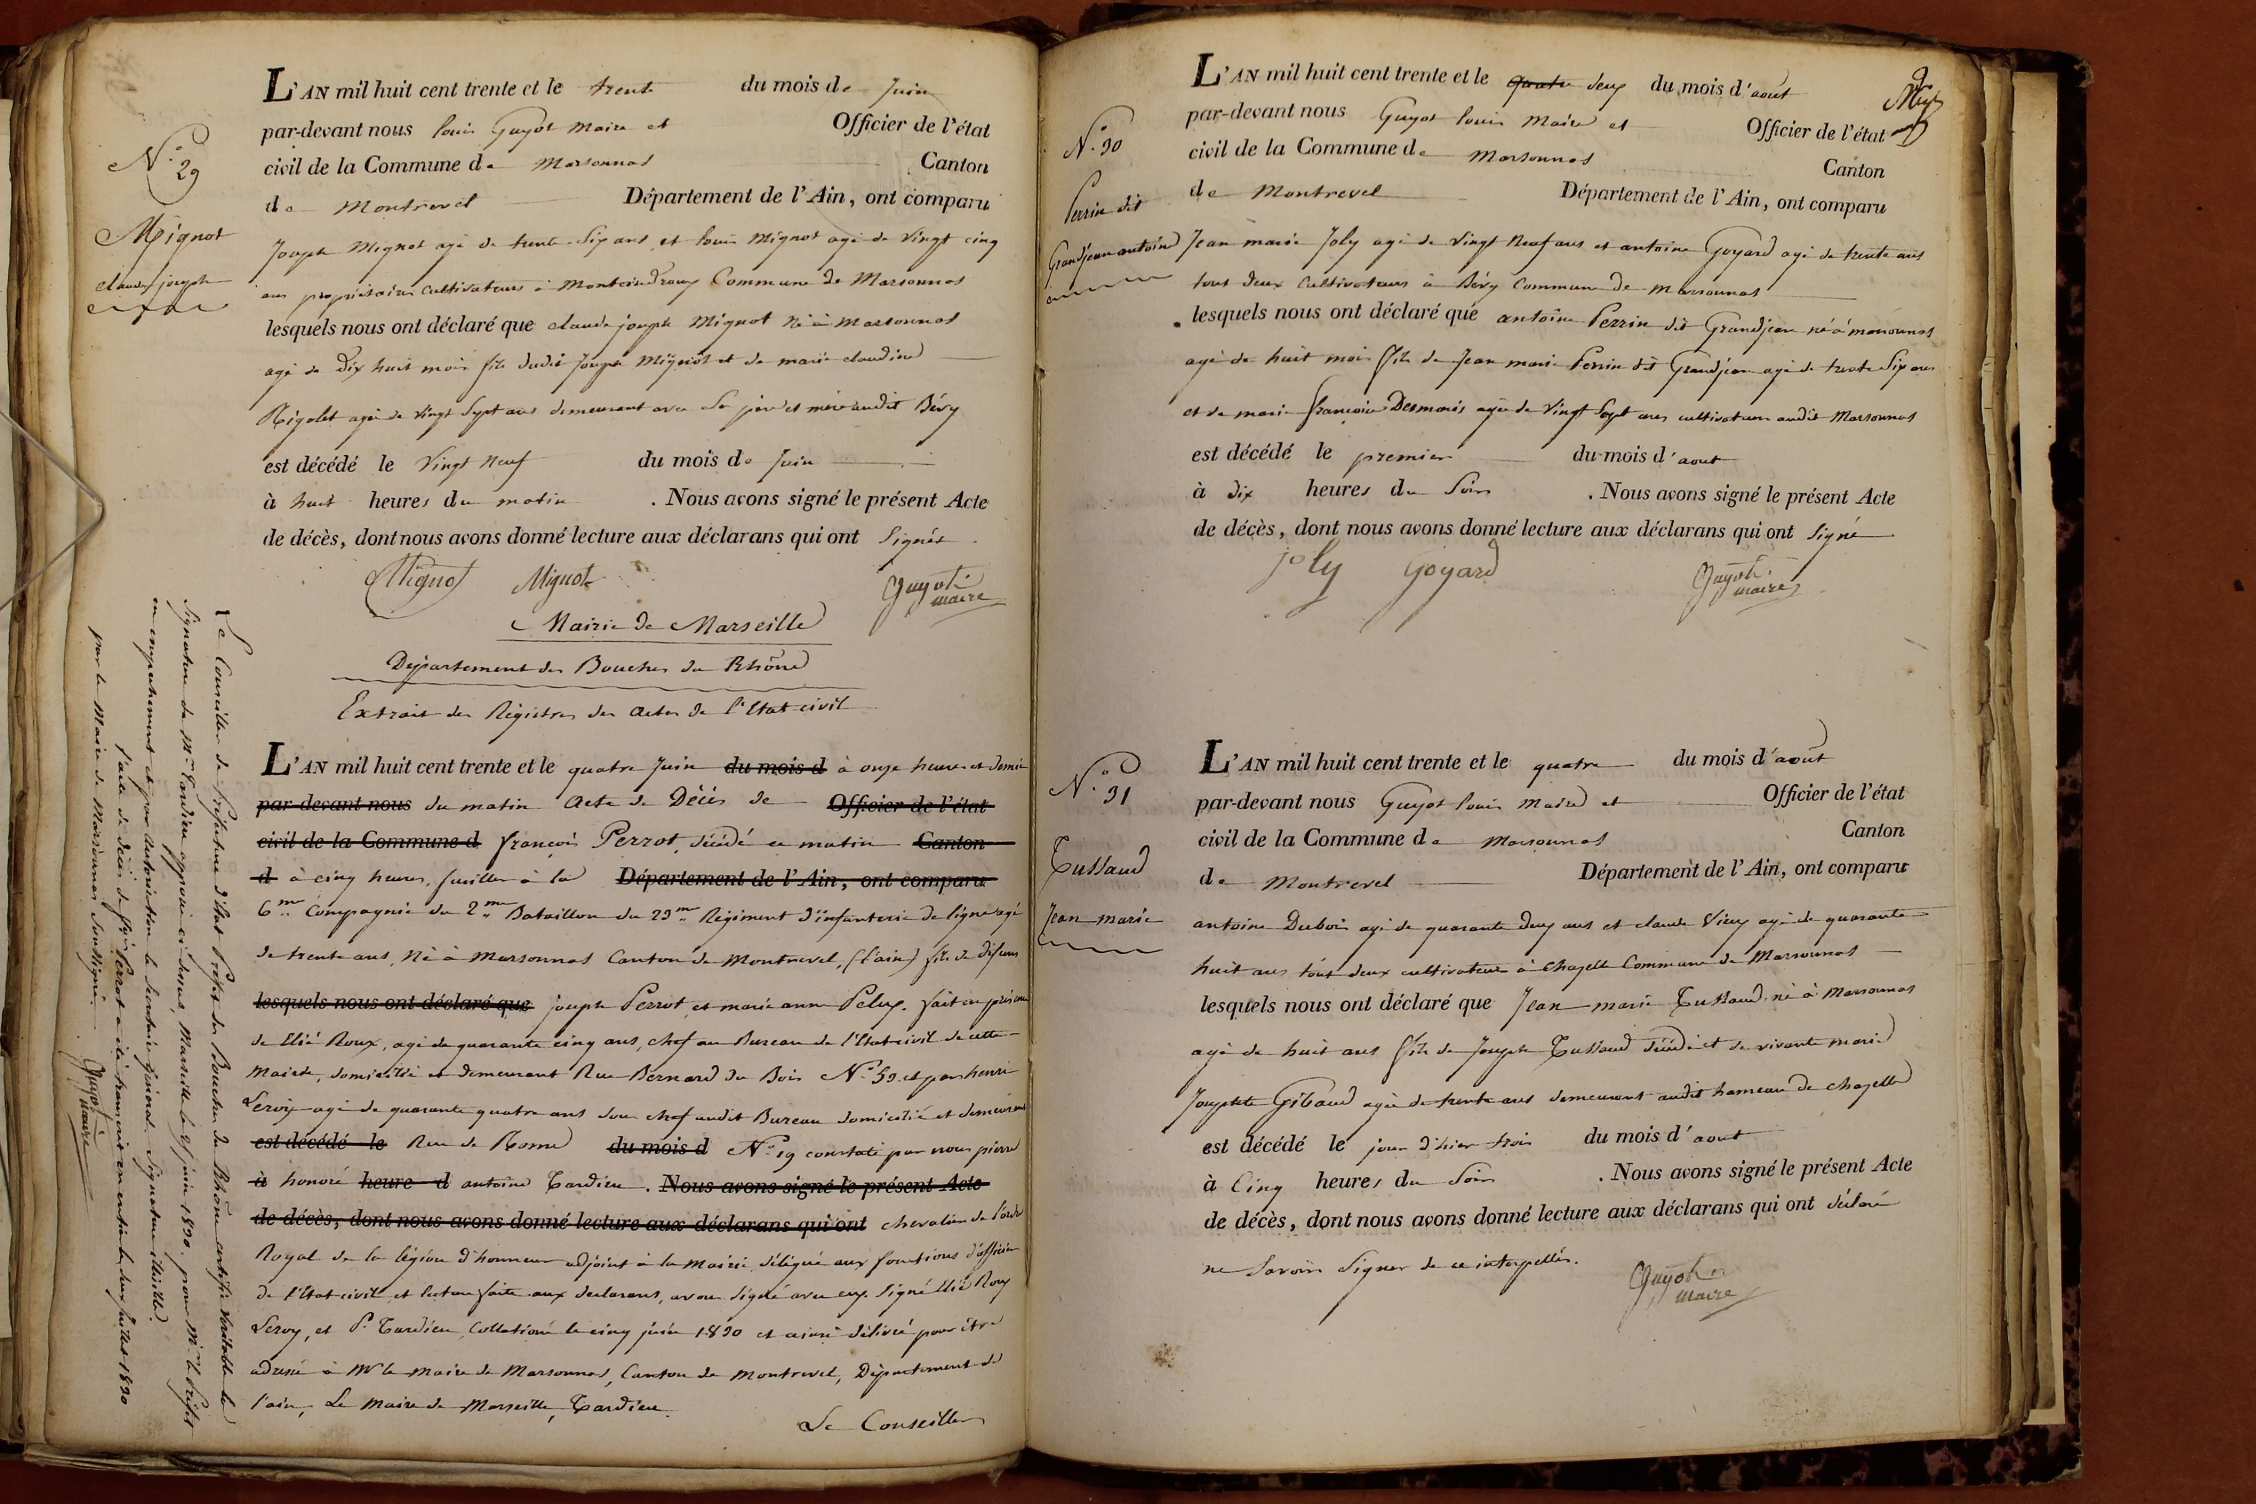 N.° 29
Mignot
claude joseph
L'AN mil huit cent trente et le trente du mois de Juin
par-devant nous louis Guyot maire et Officier de l'état
civil de la Commune de Marsonnas Canton
de Montrevel Département de l'Ain, ont comparu
Joseph Mignot agé de trente Six ans et louis Mignot agé de Vingt cinq
ans propriétaires cultivateurs à Commune de Marsonnas
lesquels nous ont déclaré que claude joseph Mignot né à Marsonnas
agé de dix huit mois fils dudit Joseph Mignot et de marie claudine
Rigolet agée de vingt Sept ans demeurant avec Ses père et mère audit Bévy
est décédé le Vingt Neuf du mois de Juin
à huit heures du matin . Nous avons signé le présent Acte
de décès, dont nous avons donné lecture aux déclarans qui ont Signés
Mignot Mignot Guyot maire
Mairie de Marseille
Département des Bouches du Rhône
Extrait des Régistres des Actes de l'Etat civil
L'AN mil huit cent trente et le quatre Juin du mois d à onze heures et demie
par-devant nous du matin Acte de Décès de Officier de l'état
civil de la Commune d françois Perrot, décédé ce matin Canton
d à cinq heures, fusilier à la Département de l'Ain, ont comparu
6me Compagnie du 2me Bataillon du 23me Régiment d'infanterie de ligne agé
de trente ans, Né à Marsonnas Canton de Montrevel, (l'ain) fils de défunts
lesquels nous ont déclaré que joseph Perrot, et marie anne Pelux. fait en présence
de Elié Roux, agé de quarante cinq ans, chef au Bureau de l'Etat civil de cette
Mairie, domicilié et demeurant Rue Bernard du Bois N.° 59. et par henri
Leroy agé de quarante quatre ans sous chef audit Bureau domicilié et demeurant
est décédé le Rue de Rome du mois d N.° 19 constaté par nous pierre
à honoré heure d antoine Tardieu . Nous avons signé le présent Acte
de décès, dont nous avons donné lecture aux déclarans qui ont chevalier de l'ordre
Royal de la légion d'honneur adjoint à la Mairie, délégué aux fonctions d'officier
de l'Etat civil, et lecture faite aux declarans, avons signé avec eux. Signé Elié Roux
Leroy, et P. Tardieu, Collationé le cinq juin 1830 et ainsi délivré pour être
adressé à Mr le Maire de Marsonnas, Canton de Montrevel, Département de
l'ain, Le Maire de Marseille, Tardieu.
Le Conseiller
Le Conseiller de Préfecture d'Etat Préfet des Bouches du Rhône certifie Véritable la
Signature de Mr Tardieu apposée ci-dessus, Marseille le juin 1830. pour Mr le Préfet
en empechement et par autorisation le Secrétaire général. Signature illisible.
l'acte de décès de Perrot a été transcrit en entier le deux Juillet 1830
par le Maire de Marsonnas Soussigné
Guyot maire
N.° 30
Perrin dit
Grandjean antoine
L'AN mil huit cent trente et le quatre deux du mois d'août
par-devant nous Guyot louis Maire et Officier de l'état
civil de la Commune de Marsonnas Canton
de Montrevel Département de l'Ain, ont comparu
Jean marie Joly agé de Vingt Neuf ans et antoine Goyard agé de trente ans
tout deux Cultivateurs à Bévy Commune de Marsonnas
lesquels nous ont déclaré que antoine Perrin dit Grandjean né à Marsonnas
agé de huit mois fils de Jean marie Perrin dit Grandjean agé de trente Six ans
et de marie françoise Desmaris agée de Vingt Sept ans cultivateurs audit Marsonnas
est décédé le premier du mois d'aout
à dix heures du Soir . Nous avons signé le présent Acte
de décès, dont nous avons donné lecture aux déclarans qui ont signé
joly Goyard Guyot maire
N.° 31
Tussaud
Jean marie
L'AN mil huit cent trente et le quatre du mois d'août
par-devant nous Guyot louis Maire et Officier de l'état
civil de la Commune de Marsonnas Canton
de Montrevel Département de l'Ain, ont comparu
antoine Dubois agé de quarante deux ans et claude Vieux agé de quarante
huit ans tout deux cultivateurs à Chazelle Commune de Marsonnas
lesquels nous ont déclaré que Jean marie Tussaud né à Marsonnas
agé de huit ans fils de Joseph Tussaud décédé et de vivante marie
Josephte Gibaud agée de trente ans demeurant audit hameau de chazelle
est décédé le jour d'hier trois du mois d'aout
à Cinq heures du Soir . Nous avons signé le présent Acte
de décès, dont nous avons donné lecture aux déclarans qui ont déclaré
ne Savoir Signer de ce interpellés.
Guyot maire